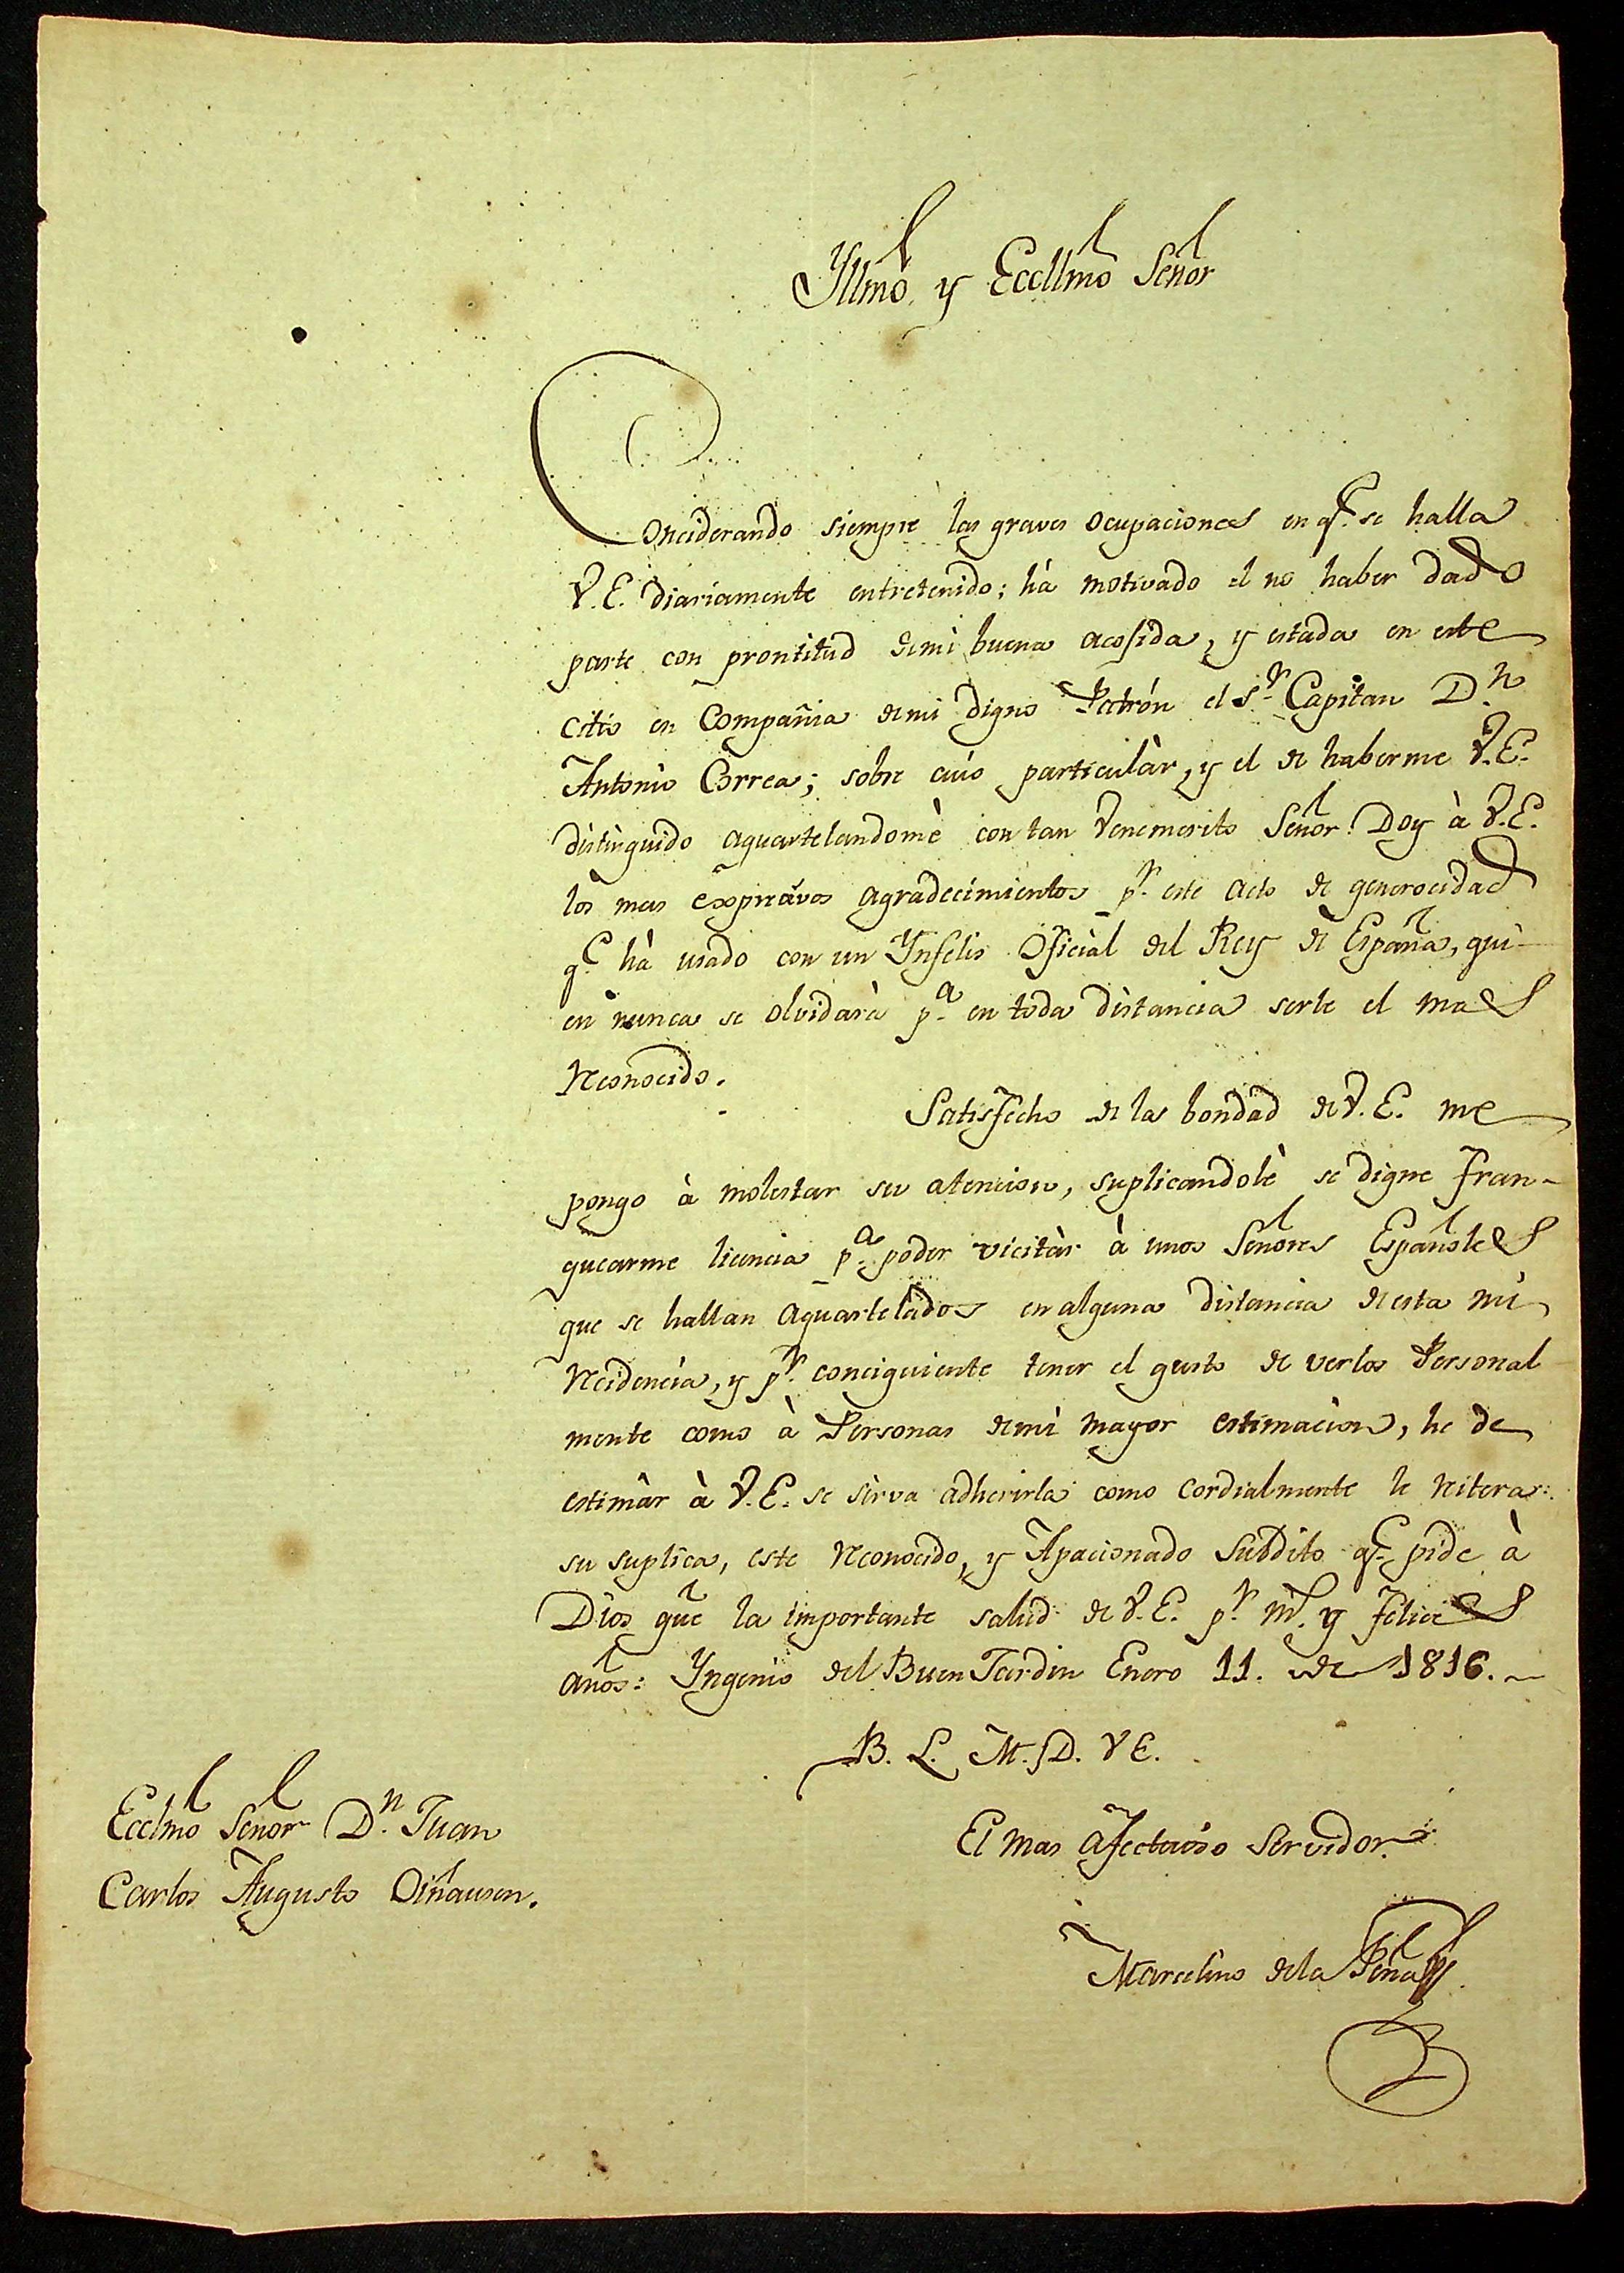 Yllmo y Ecellmo Señor
Conciderando siempre las graves ocupaciones en q.e se halla
V.E. diariamente entretenido; hà motivado el no haber dado
parte con prontitud demi buena acosida, y estada en este
citio en Compañia demi digno Patrón el S.r Capitan D.n
Antonio Correa; sobre cuio particulàr, y el de haberme V.E.
distinguido aquartelandomè con tan Venemerito Señor. Doy à V.E.
los mas agradecimientos p.r este acto de generocidad
q.e hà usado con un Ynfelis Oficial del Rey de España, qui-
en nunca se olvidarà p.a en toda distancia serle el mas
Reconocido.
Satisfecho de la bondad de V.E. me
pongo à molestar su atencion, suplicandolè se digne fran-
quearme licencia p.a poder vicitàr à unos Señores Españoles
que se hallan aquartelados en alguna distancia de esta mi
Recidencia, y p.r conciguiente tener el gusto de verlos Personal
mente como à Personas demi mayor estimacion, he de
estimàr à V.E. se sirva adherirla como cordialmente le Reitera
su suplica, este Reconocido, y Apacionado Subdito q.e pide à
Dios gũe la importante salud de V.E. p.r m.s y felices
años: Yngenio del Buen Jardin Enero 11. de 1816.
B. L. M. D. V E.
El mas afectuoso Servidor.
Marcelino dela Peña
Ecelmo Señor D.n Juan
Carlos Augusto Oiñausen.